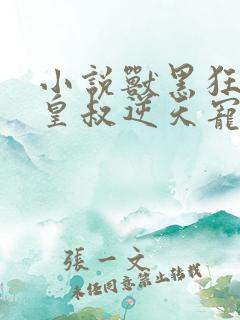 小說獸黑狂
皇叔逆天寵
張一文
未經同意禁止轉載